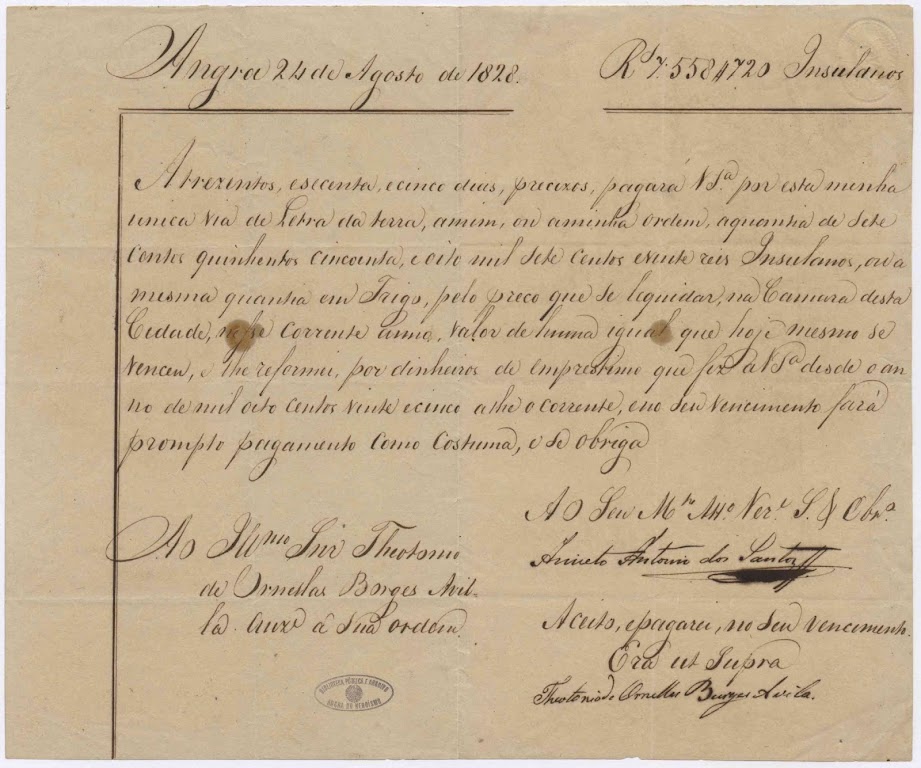 Angra 24 de Agosto de 1828.
R.s 7:558$720 Insulanos
A trezintos, esecenta, ecinco dias, precizos, pagará V S.ª por esta minha
unica via de Letra da terra, amim, ou aminha ordem, aquantia de Sete
Contos quinhentos Cincoenta, e oito mil Sete Centos evinte reis Insulanos, ou a
mesma quantia em Trigo, pelo preco que se lequidar, na Camara desta
Cedade, neste Corrente anno, Valor de huma igual que hoje mesmo se
Venceu, e lhe reformei, por dinheiros de emprestimo que fiz a V S.ª desde o an
no de mil oito Centos vinte ecinco athe o Corrente, eno Seu Vencimento fará
prompto pagamento Como Costuma, e se obriga
Ao Seu M.to Att.º Ner.ª S. & Obr.º
Ao Ill.mo Snr Theotonio
de Ornellas Borges Avil-
la. Auz.e á Sua Ordem.
Aniceto Antonio dos Santos
Aceito, epagarei, no Seu Vencimento.
Era ut Supra
Theotonio de Ornellas Borges Avila.
BIBLIOTECA PÚBLICA E ARQUIVO
ANGRA DO HEROÍSMO